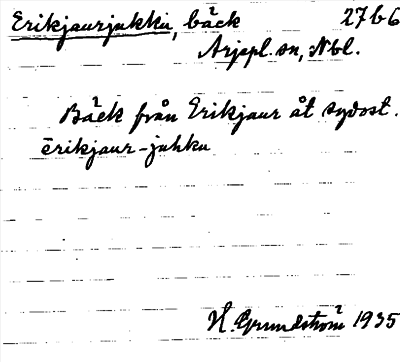 Erikjaurjukku, bäck 27b6
Arjepl. sn, Nbl.
Bäck från Erikjaur åt sydost.
ērikjaur-juhku
H. Grundström 1935